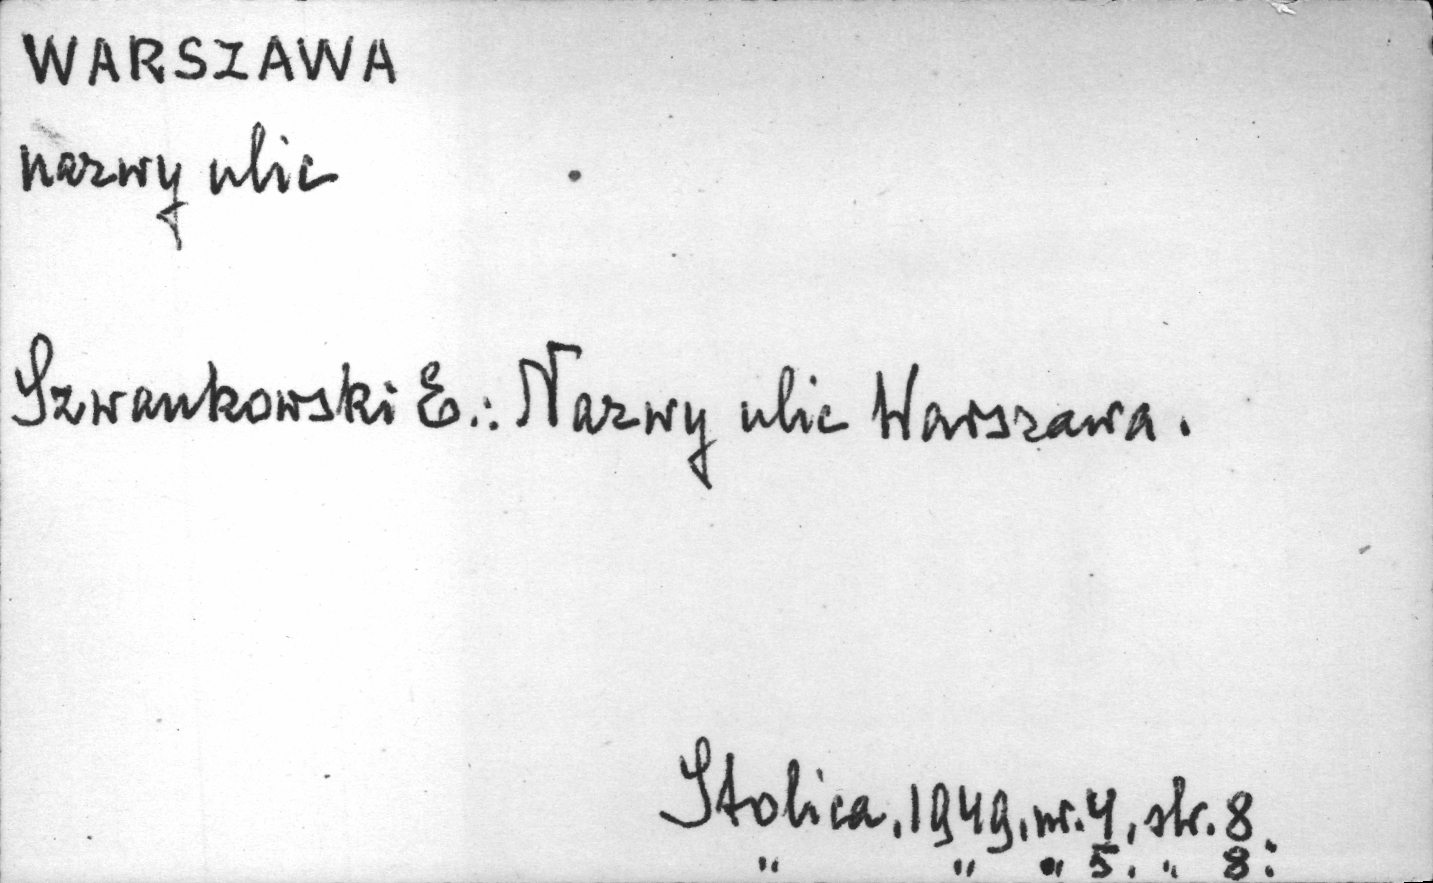 WARSZAWA
nazwy ulic
Szwankowski E.: Nazwy ulic Warszawa.
Stolica, 1949, nr. 4, str. 8.
" " " 5. " 8.